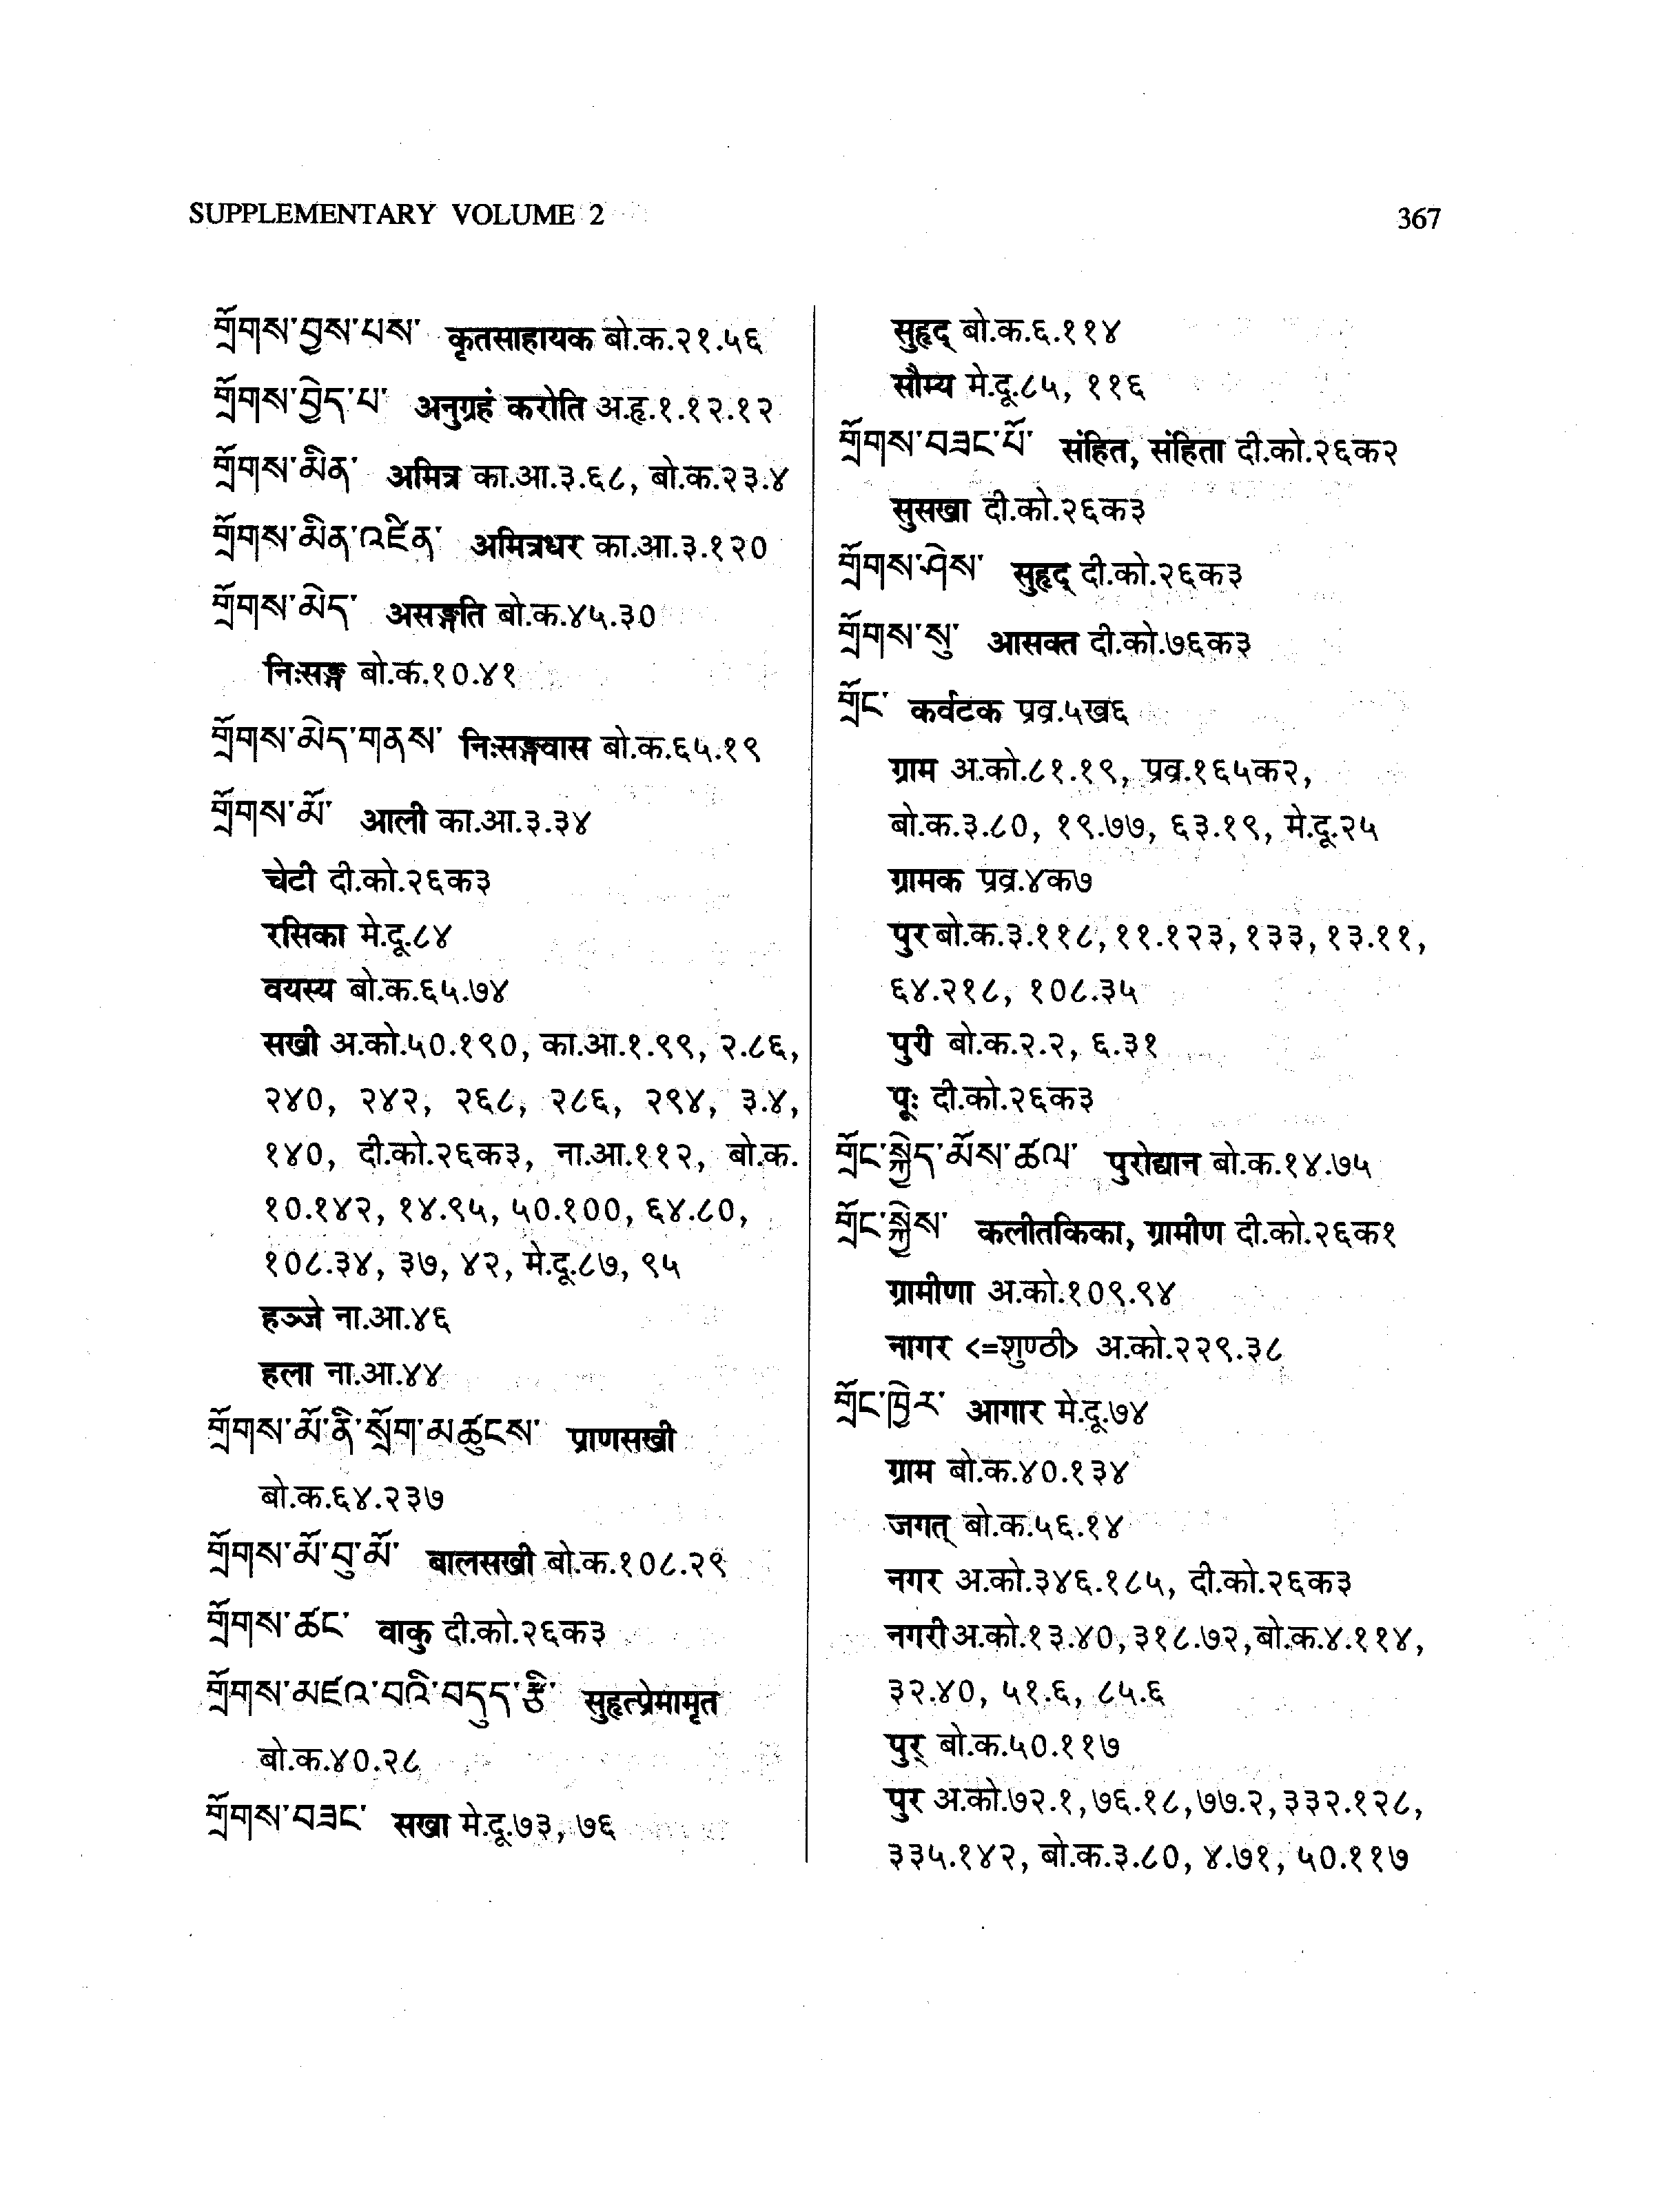 SUPPLEMENTARY VOLUME 2
367
གྲོགས་བྱས་པས་ कृतसाहायक बो.क.२१.५६
གྲོགས་བྱེད་པ་ अनुग्रहं करोति अ.हृ.१.१२.१२
གྲོགས་མིན་ अमित्र का.आ.३.६८, बो.क.२३.४
གྲོགས་མིན་འཛིན་ अमित्रधर का.आ.३.१२०
གྲོགས་མེད་ असङ्गति बो.क.४५.३०
निःसङ्ग बो.क.१०.४१
གྲོགས་མེད་གནས་ निःसङ्गवास बो.क.६५.१९
གྲོགས་མོ་ आली का.आ.३.३४
चेटी दी.को.२६क३
रसिका मे.दू.८४
वयस्य बो.क.६५.७४
सखी अ.को.५०.१९०, का.आ.१.९९, २.८६,
२४०, २४२, २६८, २८६, २९४, ३.४,
१४०, दी.को.२६क३, ना.आ.११२, बो.क.
१०.१४२, १४.९५, ५०.१००, ६४.८०,
१०८.३४, ३७, ४२, मे.दू.८७, ९५
हञ्जे ना.आ.४६
हला ना.आ.४४
གྲོགས་མོ་ནི་སྲོག་མཚུངས་ प्राणसखी
बो.क.६४.२३७
གྲོགས་མོ་བུ་མོ་ बालसखी बो.क.१०८.२९
གྲོགས་ཚང་ वाकु दी.को.२६क३
གྲོགས་མཛའ་བའི་བདུད་རྩི་ सुहृत्प्रेमामृत
बो.क.४०.२८
གྲོགས་བཟང་ सखा मे.दू.७३, ७६
सुहृद् बो.क.६.११४
सौम्य मे.दू.८५, ११६
གྲོགས་བཟང་པོ་ संहित, संहिता दी.को.२६क२
सुसखा दी.को.२६क३
གྲོགས་ཤེས་ सुहृद् दी.को.२६क३
གྲོགས་སུ་ आसक्त दी.को.७६क३
གྲོང་ कर्वटक प्रव्र.५ख६
ग्राम अ.को.८१.१९, प्रव्र.१६५क२,
बो.क.३.८०, १९.७७, ६३.१९, मे.दू.२५
ग्रामक प्रव्र.४क७
पुर बो.क.३.११८, ११.१२३, १३३, १३.११,
६४.२१८, १०८.३५
पुरी बो.क.२.२, ६.३१
पूः दी.को.२६क३
གྲོང་སྐྱེད་མོས་ཚལ་ पुरोद्यान बो.क.१४.७५
གྲོང་སྐྱེས་ कलीतकिका, ग्रामीण दी.को.२६क१
ग्रामीणा अ.को.१०९.९४
नागर <=शुण्ठी> अ.को.२२९.३८
གྲོང་ཁྱེར་ आगार मे.दू.७४
ग्राम बो.क.४०.१३४
जगत् बो.क.५६.१४
नगर अ.को.३४६.१८५, दी.को.२६क३
नगरी अ.को.१३.४०, ३१८.७२, बो.क.४.११४,
३२.४०, ५१.६, ८५.६
पुर् बो.क.५०.११७
पुर अ.को.७२.१, ७६.१८, ७७.२, ३३२.१२८,
३३५.१४२, बो.क.३.८०, ४.७१, ५०.११७